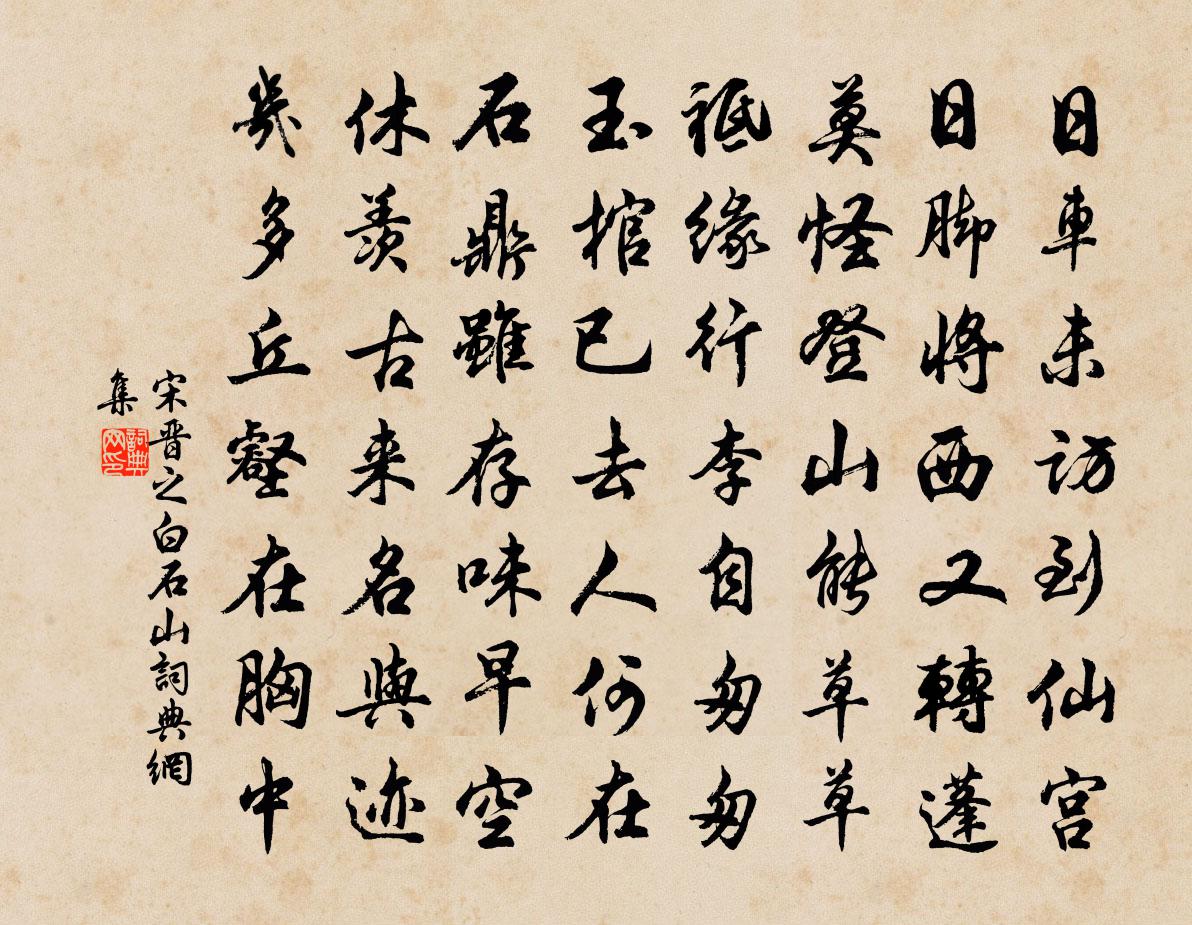 日車未訪到仙宮
日脚將西又轉蓬
莫怪登山能草草
祗緣行李自匆匆
玉棺已去人何在
石鼎雖存味早空
休羨古来名與迹
幾多丘壑在胸中
宋晋之白石山詞典網
集
詞典网印